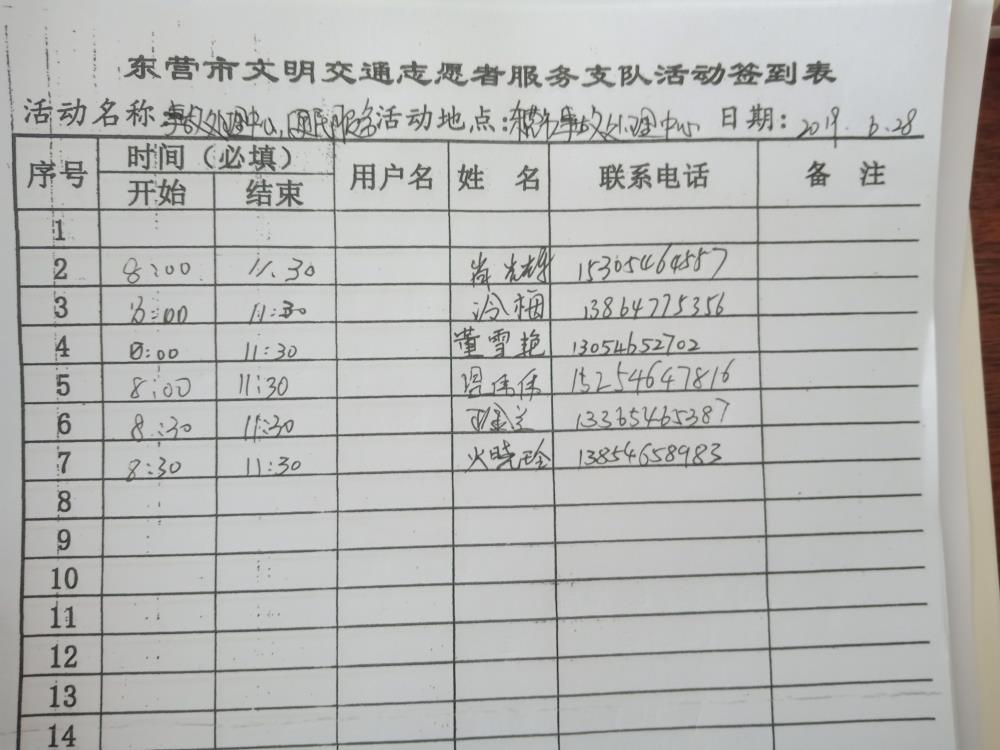 东营市文明交通志愿者服务支队活动签到表
活动名称 事故处理中心 便民服务 活动地点: 事故处理中心 日期: 2019.6.28
序号 时间（必填） 用户名 姓 名 联系电话 备 注
开始 结束
1
2 8:00 11:30 15305464557
3 8:00 11:30 冷梅 13864775356
4 8:00 11:30 董雪艳 13054652702
5 8:00 11:30 15254647816
6 8:30 11:30 13365465387
7 8:30 11:30 13854658983
8
9
10
11
12
13
14